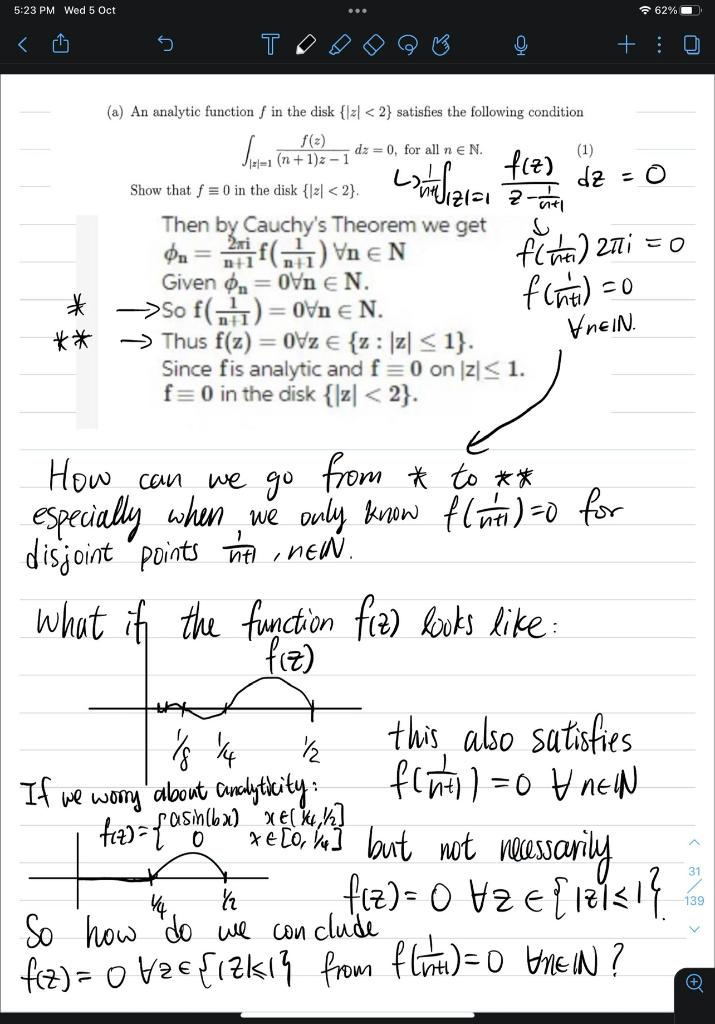 5:23 PM Wed 5 Oct
62%
(a) An analytic function f in the disk {|z| < 2} satisfies the following condition
∫_{|z|=1} f(z)/((n+1)z − 1) dz = 0, for all n ∈ N. (1)
↳ 1/(n+1) ∫_{|z|=1} f(z)/(z − 1/(n+1)) dz = 0
Show that f ≡ 0 in the disk {|z| < 2}.
Then by Cauchy's Theorem we get
ϕₙ = 2πi/(n+1) f(1/(n+1)) ∀n ∈ N
Given ϕₙ = 0∀n ∈ N.
* → So f(1/(n+1)) = 0∀n ∈ N.
** → Thus f(z) = 0∀z ∈ {z : |z| ≤ 1}.
Since f is analytic and f ≡ 0 on |z| ≤ 1.
f ≡ 0 in the disk {|z| < 2}.
f(1/(n+1)) 2πi = 0
f(1/(n+1)) = 0
∀n∈IN.
How can we go from * to **
especially when we only know f(1/(n+1))=0 for
disjoint points 1/(n+1), n∈IN.
What if the function f(z) looks like:
f(z)
1/8 1/4 1/2
this also satisfies
f(1/(n+1)) = 0 ∀ n∈IN
If we worry about analyticity:
f(z) = { asin(bx) x∈(1/4,1/2]
0 x∈[0,1/4]
1/4 1/2
but not necessarily
f(z) = 0 ∀z∈{|z|≤1}.
So how do we conclude
f(z) = 0 ∀z∈{|z|≤1} from f(1/(n+1))=0 ∀n∈IN?
31
139